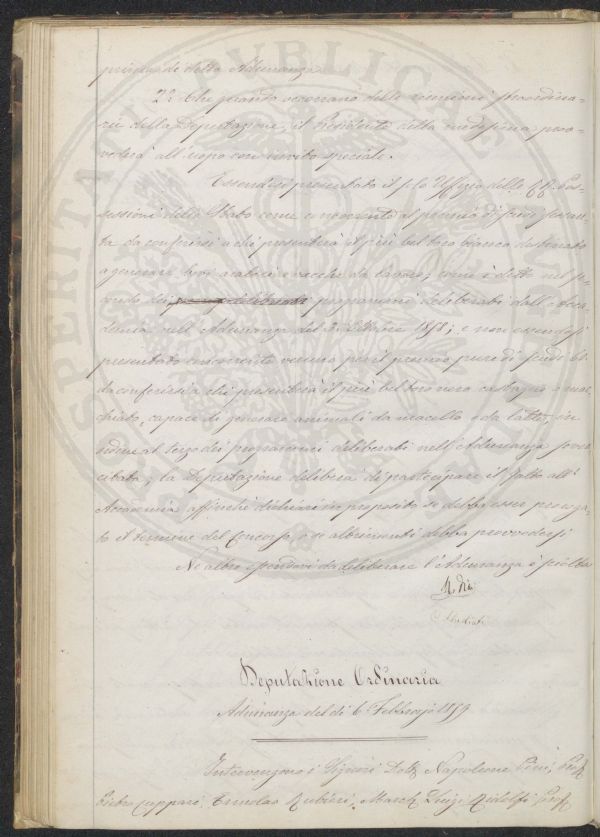 prima di detta Adunanza.
2º Che quando occorrano delle riunioni straordina-
rie della Deputazione, il Presidente della medesima prov-
vederà all'uopo con invito speciale.
Essendosi presentato il solo Uffizio delle RR. Pos-
sessioni dello Stato come concorrente al premio di scudi sessan-
ta da conferirsi a chi presenterà il più bel toro bianco destinato
a generare bovi aratori e vacche da lavoro, come è detto nel se-
condo dei programmi deliberati dall'Acca-
demia nell'Adunanza del Ottobre 1858; e non essendosi
presentato concorrente veruno per il premio pure di scudi 60
da conferirsi a chi presenterà il più bel toro nero castagno o mac-
chiato, capace di generare animali da macello e da latte,
al terzo dei programmi deliberati nell'Adunanza
la Deputazione delibera di partecipare il fatto all'
Accademia affinchè dichiari in proposito se debba esser proroga-
to il termine del Concorso, o se altrimenti debba provvedersi
Nè altro essendovi da deliberare l'Adunanza è sciolta
Deputazione Ordinaria
Adunanza del dì 6 Febbrajo 1859
Intervengono i Signori Dott. Napoleone Pini, Prof.
Pietro Cuppari, Ermolao Rubieri, March. Luigi Ridolfi, Prof.